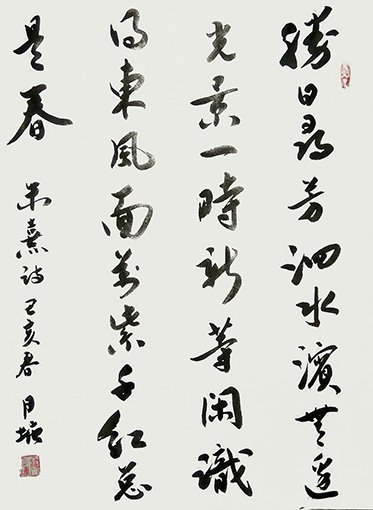 勝日尋芳泗水濱無邊
光景一時新等閑識
得東風面萬紫千紅總
是春
朱熹詩己亥春月塘